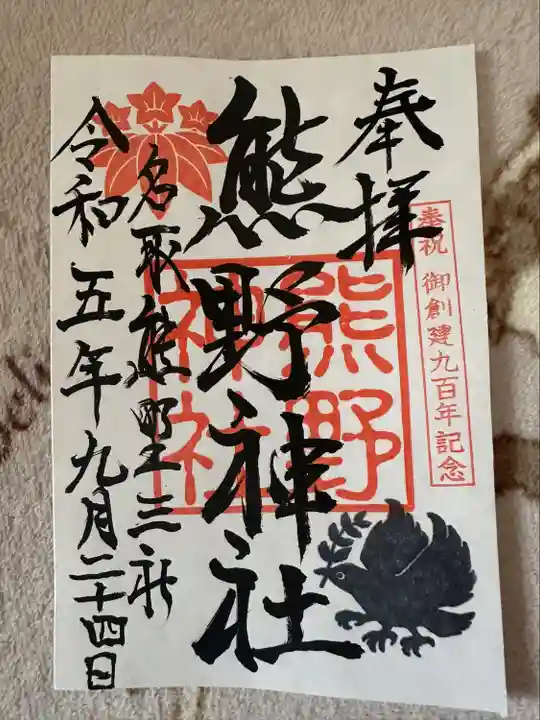 奉拝
奉祝 御創建九百年記念
熊野神社
熊野
神社
名取熊野三社
令和五年九月二十四日